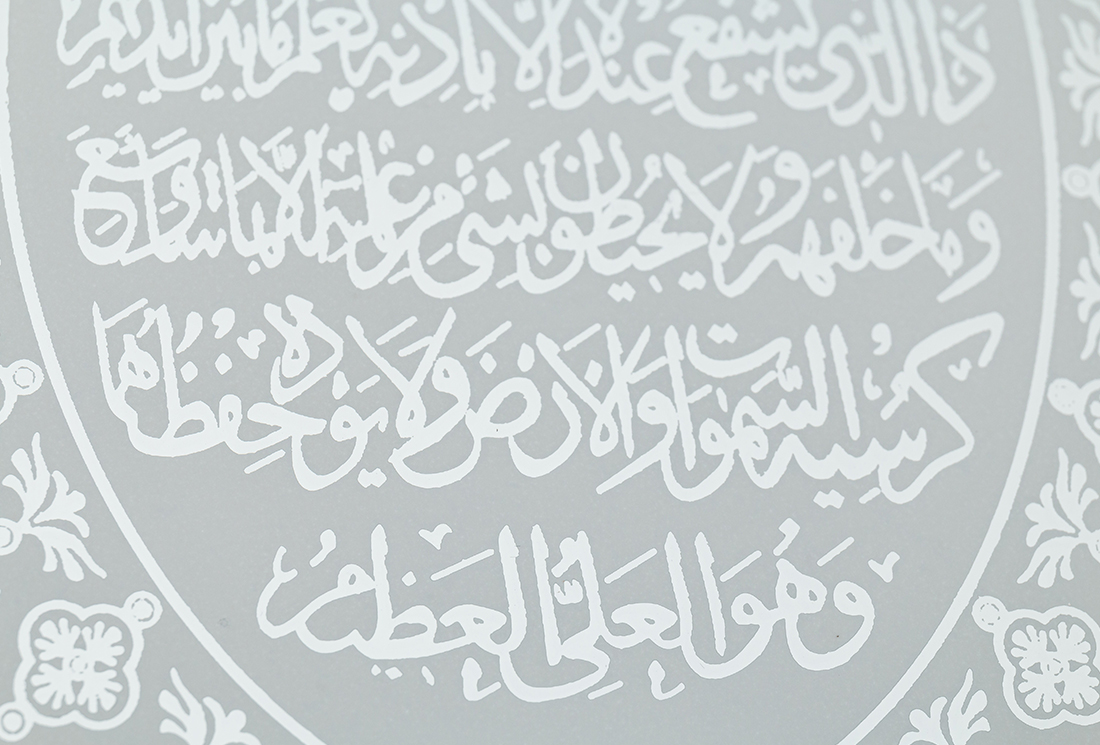 ذَا الَّذِي يَشْفَعُ عِنْدَهُ إِلَّا بِإِذْنِهِ يَعْلَمُ مَا بَيْنَ أَيْدِيهِمْ
وَمَا خَلْفَهُمْ وَلَا يُحِيطُونَ بِشَيْءٍ مِنْ عِلْمِهِ إِلَّا بِمَا شَاءَ وَسِعَ
كُرْسِيُّهُ السَّمٰوَاتِ وَالْأَرْضَ وَلَا يَئُودُهُ حِفْظُهُمَا
وَهُوَ الْعَلِيُّ الْعَظِيمُ